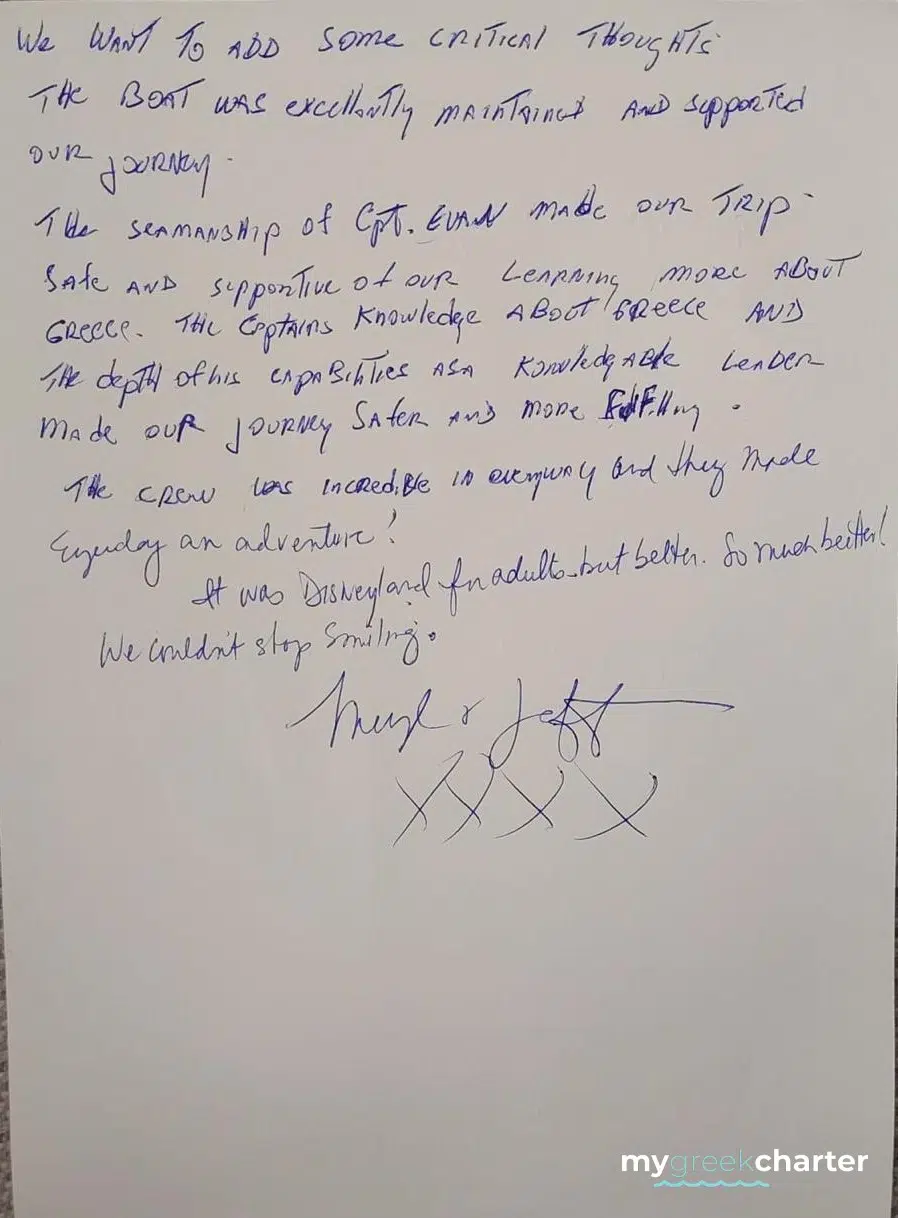 We WANT To ADD Some CRITICAl THougHTs
THe BoAT WAS excellantly MAINTAINed AND supporTed
OUR JOURNey.
The SeAMANSHip of Cpt. EVAN made OUR TRIp
Safe AND supporTive of OUR LeARNINg more ABOUT
GReece. THe CApTAINs Knowledge ABouT GReece AND
THe depTH of his CApABiliTies AS A KNowledgeABle LeADER
MAde OUR JOURNey SAfeR AND MORe FulFilliNg.
THe CRew WAS INCRediBle IN everyway and they made
Everyday an adventure!
It was DisNeyland for adults-but better. So much better!
We couldn't stop Smiling.
& Jeff
XXXX
mygreekcharter